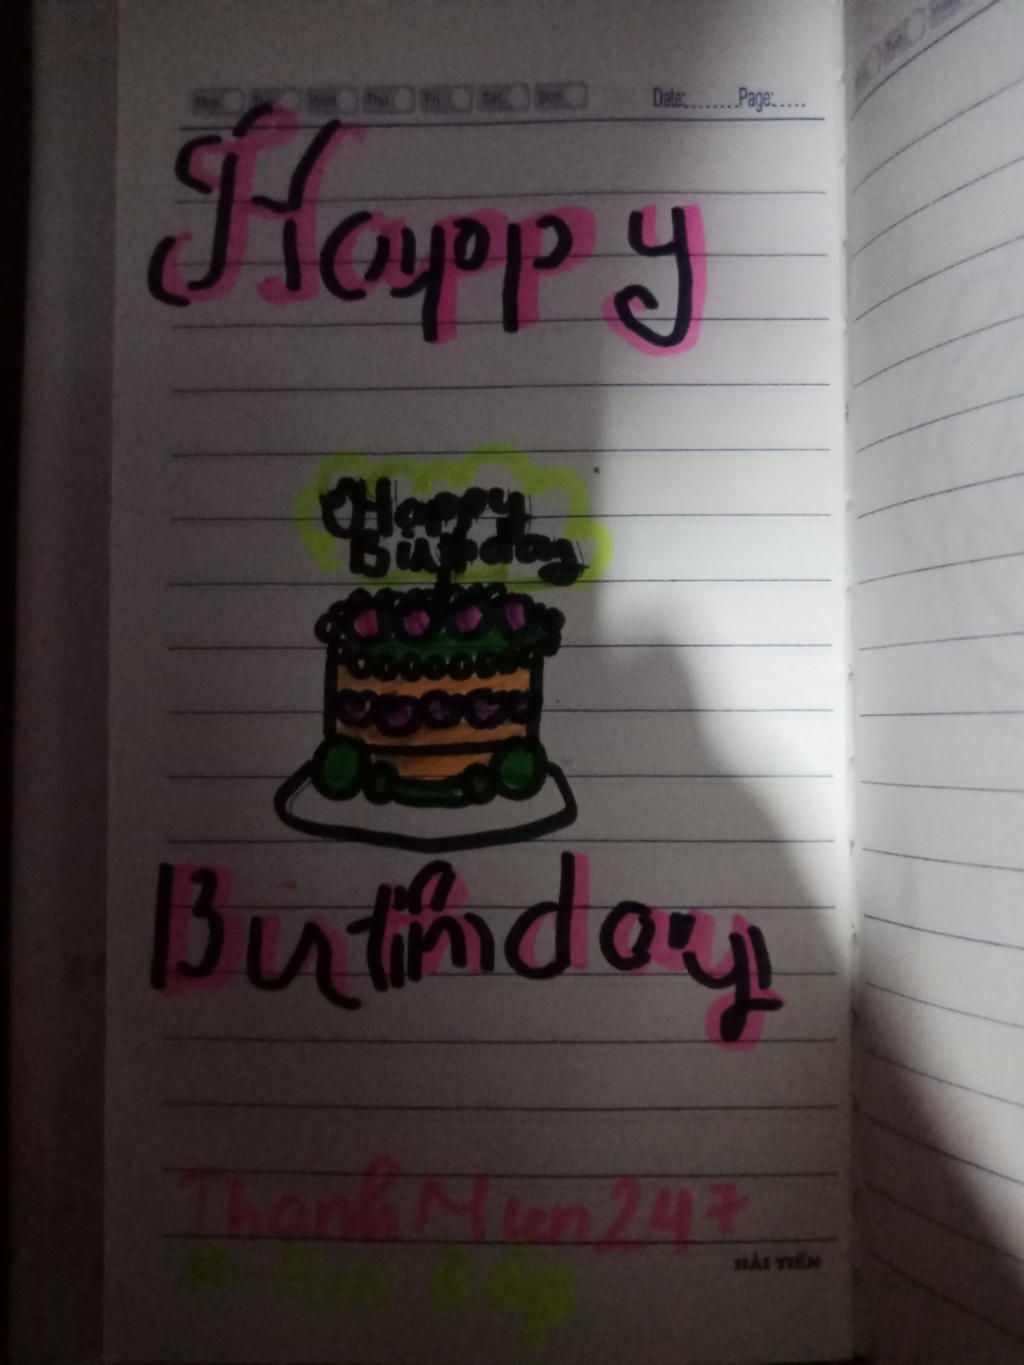 Mon Tue Wed Thu Fri Sat Sun Date: Page:
Happy
Happy
Birthday
Birthday
ThanhMun247
HẢI TIẾN